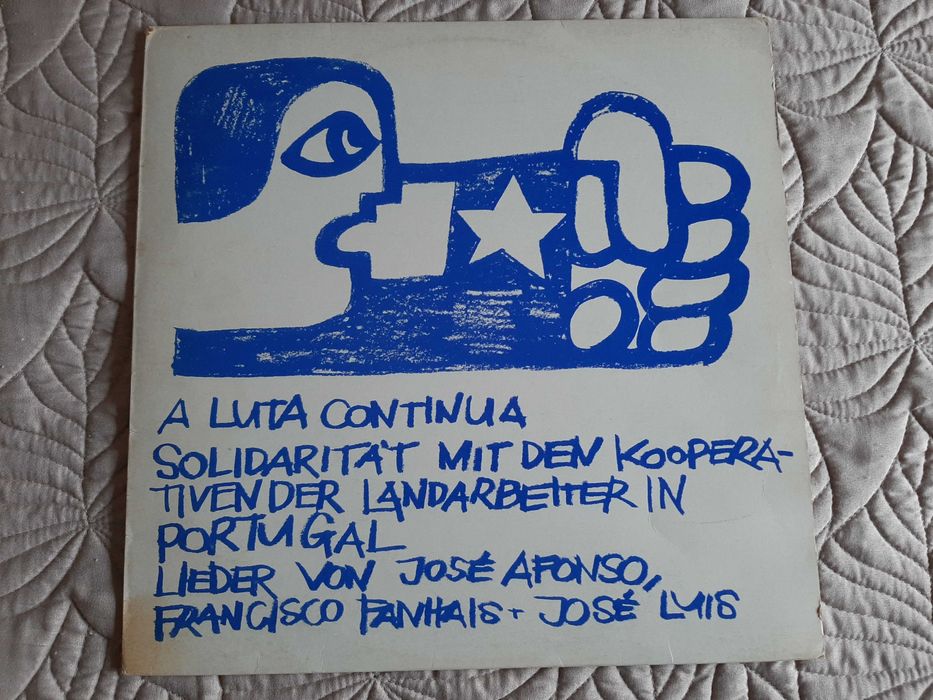 A LUTA CONTINUA
SOLIDARITÄT MIT DEN KOOPERA-
TIVEN DER LANDARBEITER IN
PORTUGAL
LIEDER VON JOSÉ AFONSO,
FRANCISCO FANHAIS + JOSÉ LUIS